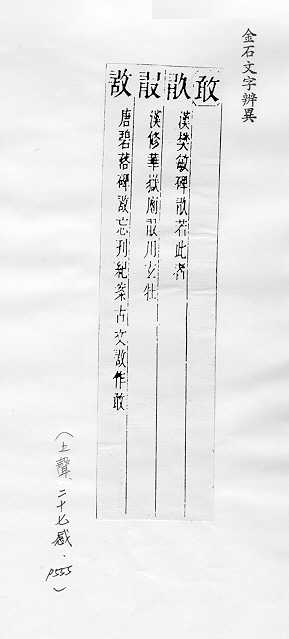 金石文字辨異
敢
漢樊敏碑 若此者
漢修華嶽廟 用玄牡
唐碧落碑 忘刊紀案古文 作敢
(上聲 二十七感.P555)